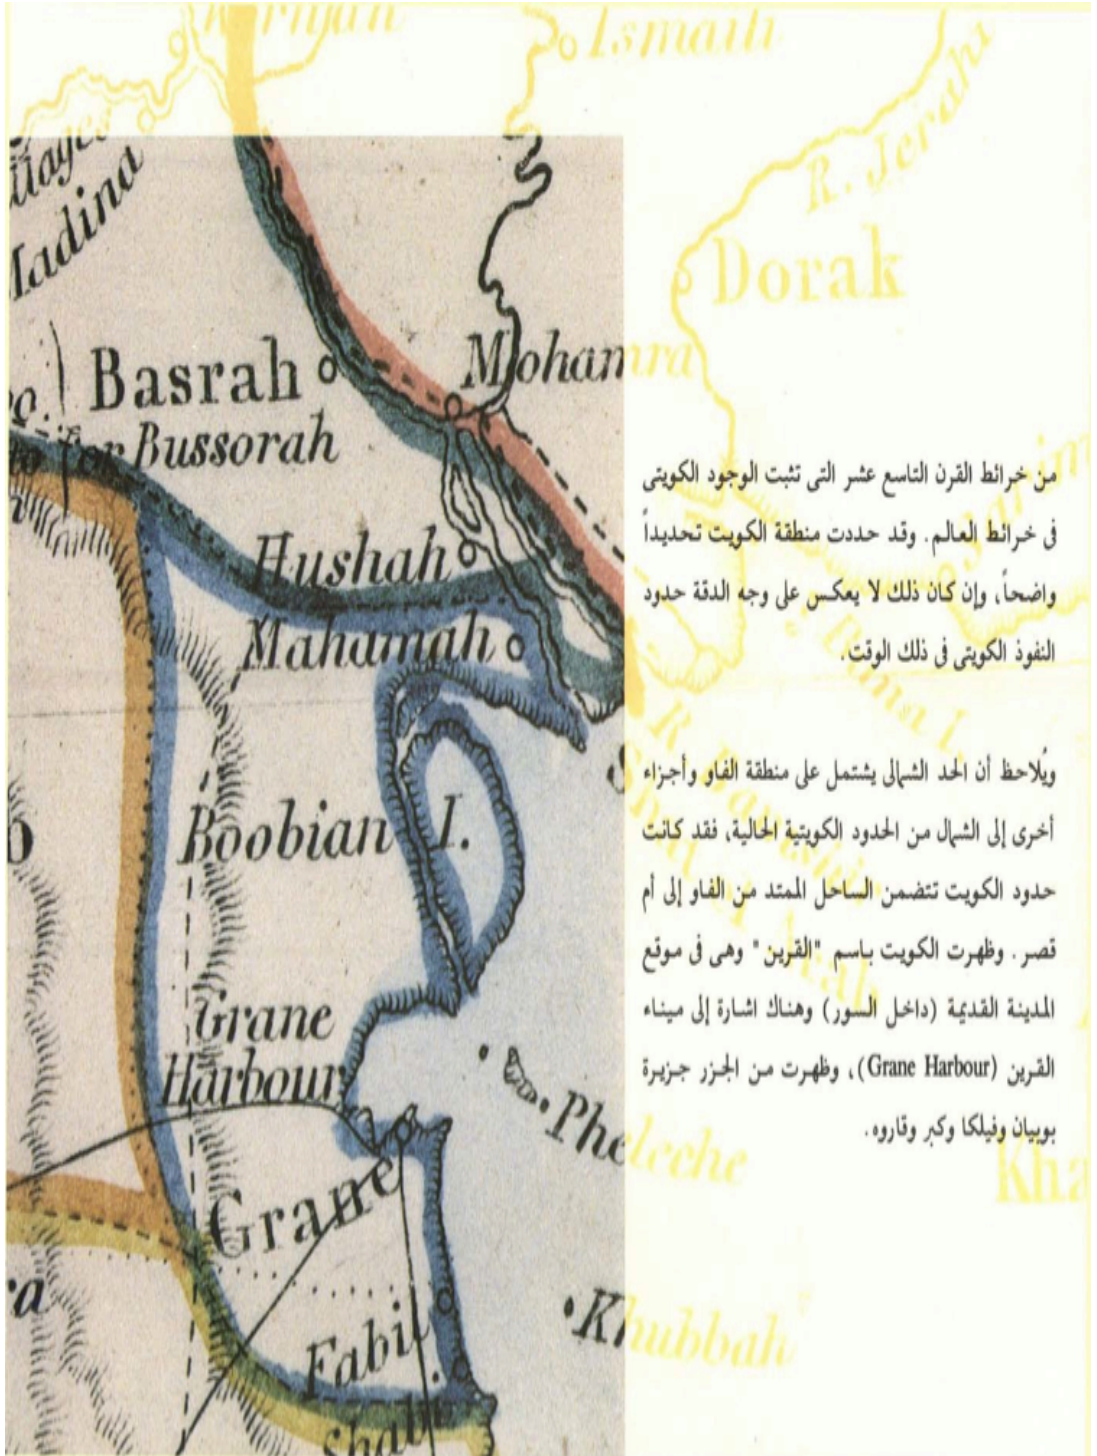 Ismaili
R. Jerahi
Madina
Dorak
Basrah
Mohamra
for Bussorah
Hushah
Mahamah
Boobian I.
Grane
Harbour
Pheleche
Grane
Khubbah
Kha
من خرائط القرن التاسع عشر التى تثبت الوجود الكويتى
فى خرائط العالم. وقد حددت منطقة الكويت تحديداً
واضحاً، وإن كان ذلك لا يعكس على وجه الدقة حدود
النفوذ الكويتى فى ذلك الوقت.
ويُلاحظ أن الحد الشمالى يشتمل على منطقة الفاو وأجزاء
أخرى إلى الشمال من الحدود الكويتية الحالية، فقد كانت
حدود الكويت تتضمن الساحل الممتد من الفاو إلى أم
قصر. وظهرت الكويت باسم "القرين" وهى فى موقع
المدينة القديمة (داخل السور) وهناك اشارة إلى ميناء
القرين (Grane Harbour)، وظهرت من الجزر جزيرة
بوبيان وفيلكا وكبر وقاروه.